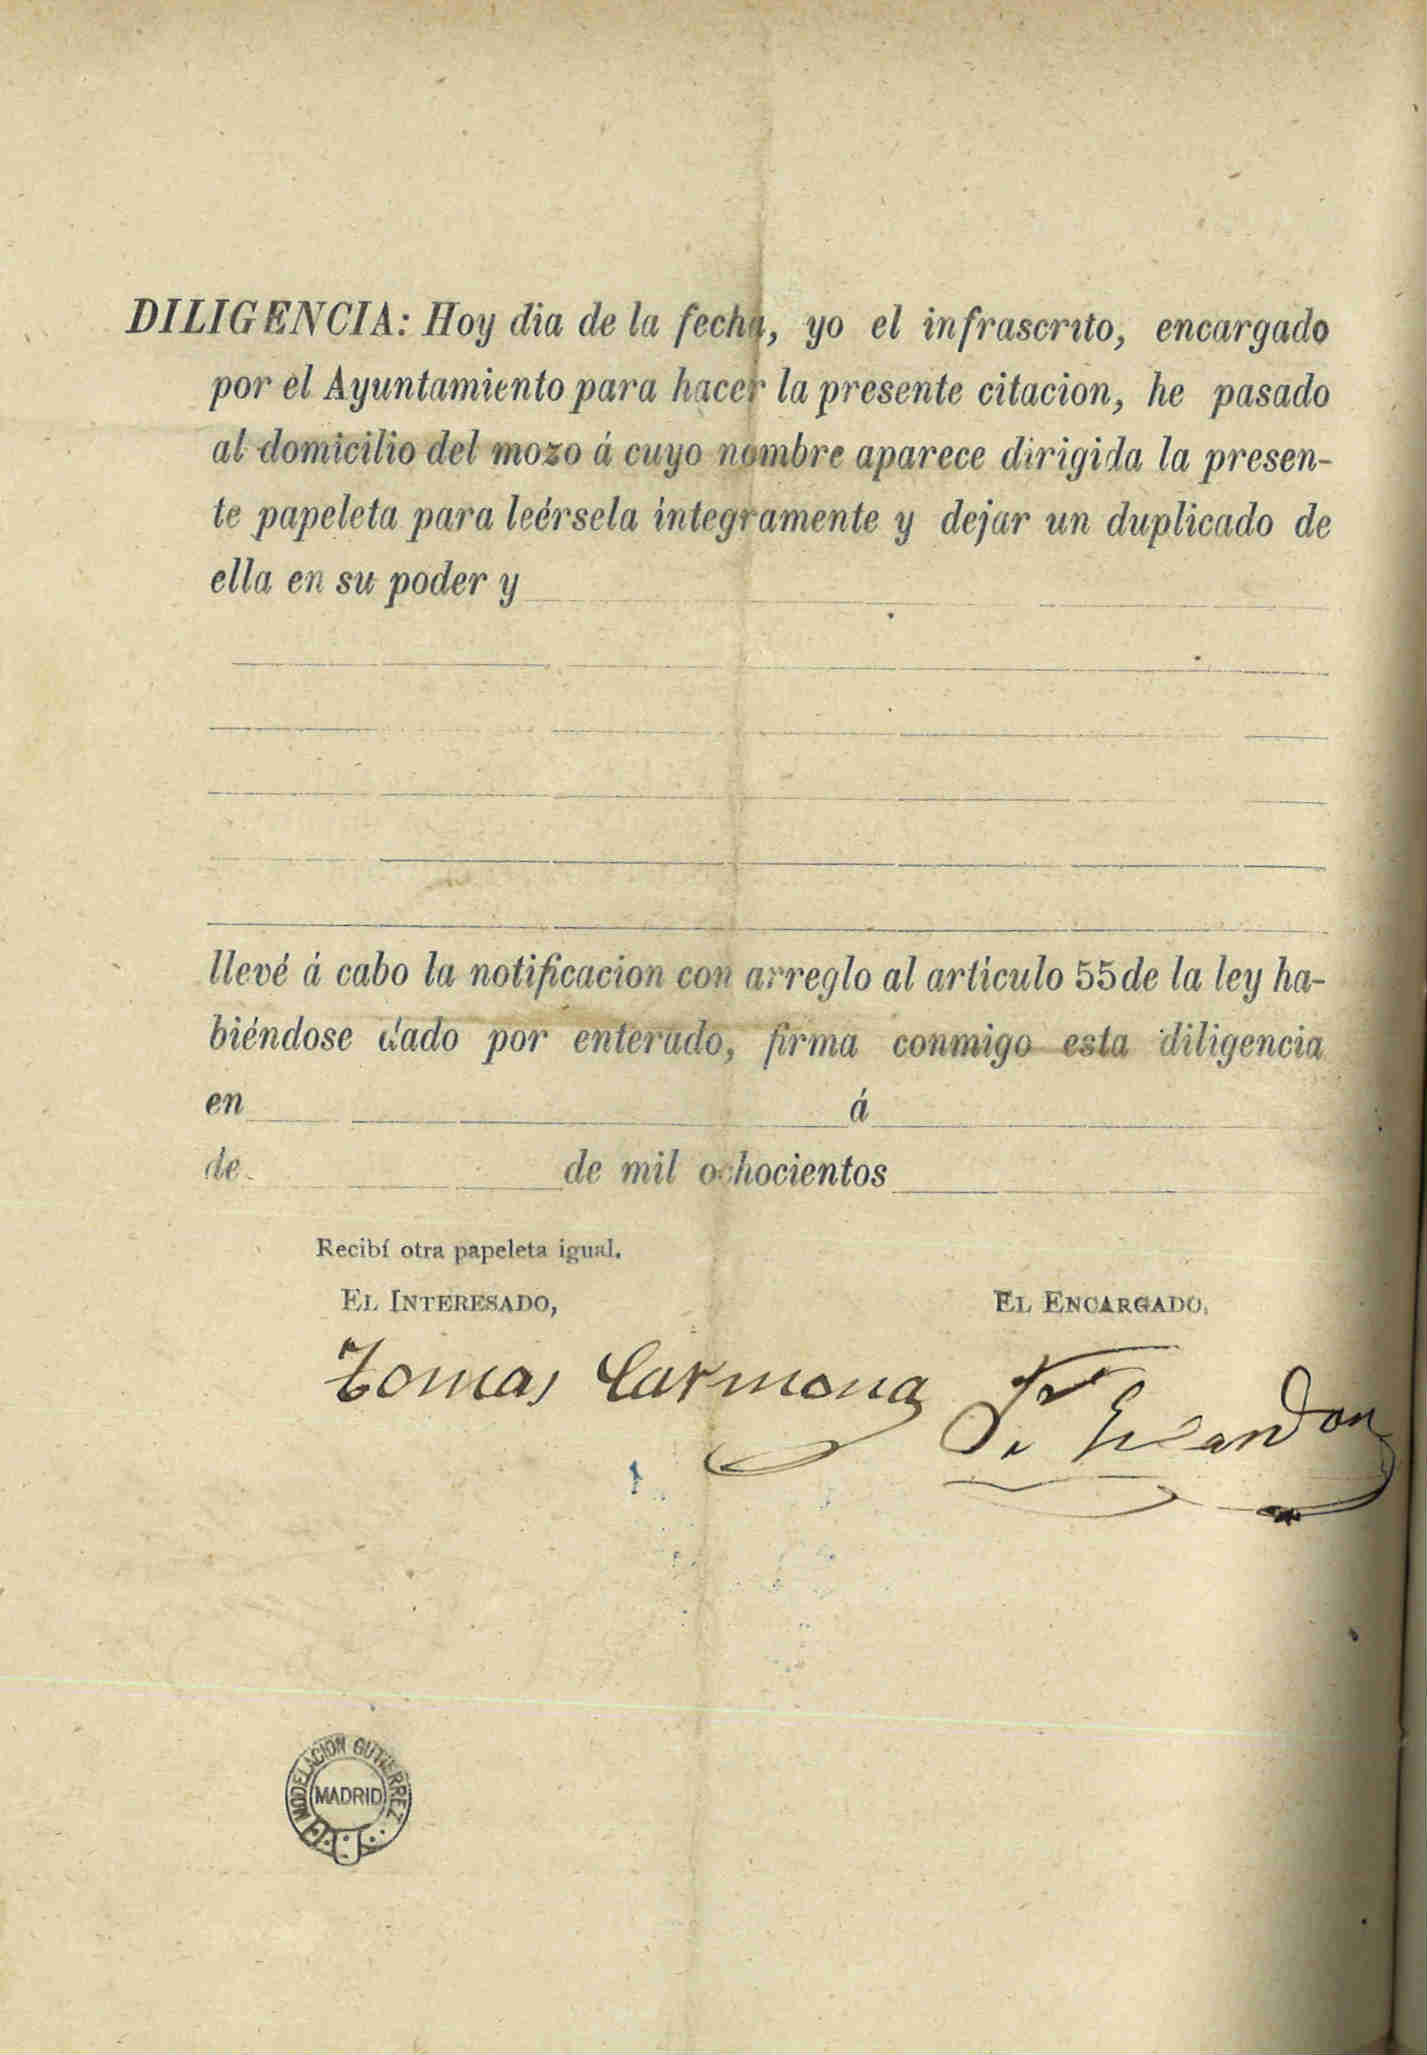 DILIGENCIA: Hoy dia de la fecha, yo el infrascrito, encargado
por el Ayuntamiento para hacer la presente citacion, he pasado
al domicilio del mozo á cuyo nombre aparece dirigida la presen-
te papeleta para leérsela íntegramente y dejar un duplicado de
ella en su poder y
llevé á cabo la notificacion con arreglo al artículo 55 de la ley ha-
biéndose dado por enterado, firma conmigo esta diligencia
en á
de de mil ochocientos
Recibí otra papeleta igual.
EL INTERESADO, EL ENCARGADO,
Tomas Carmona
MODELACION GUTIERREZ
MADRID